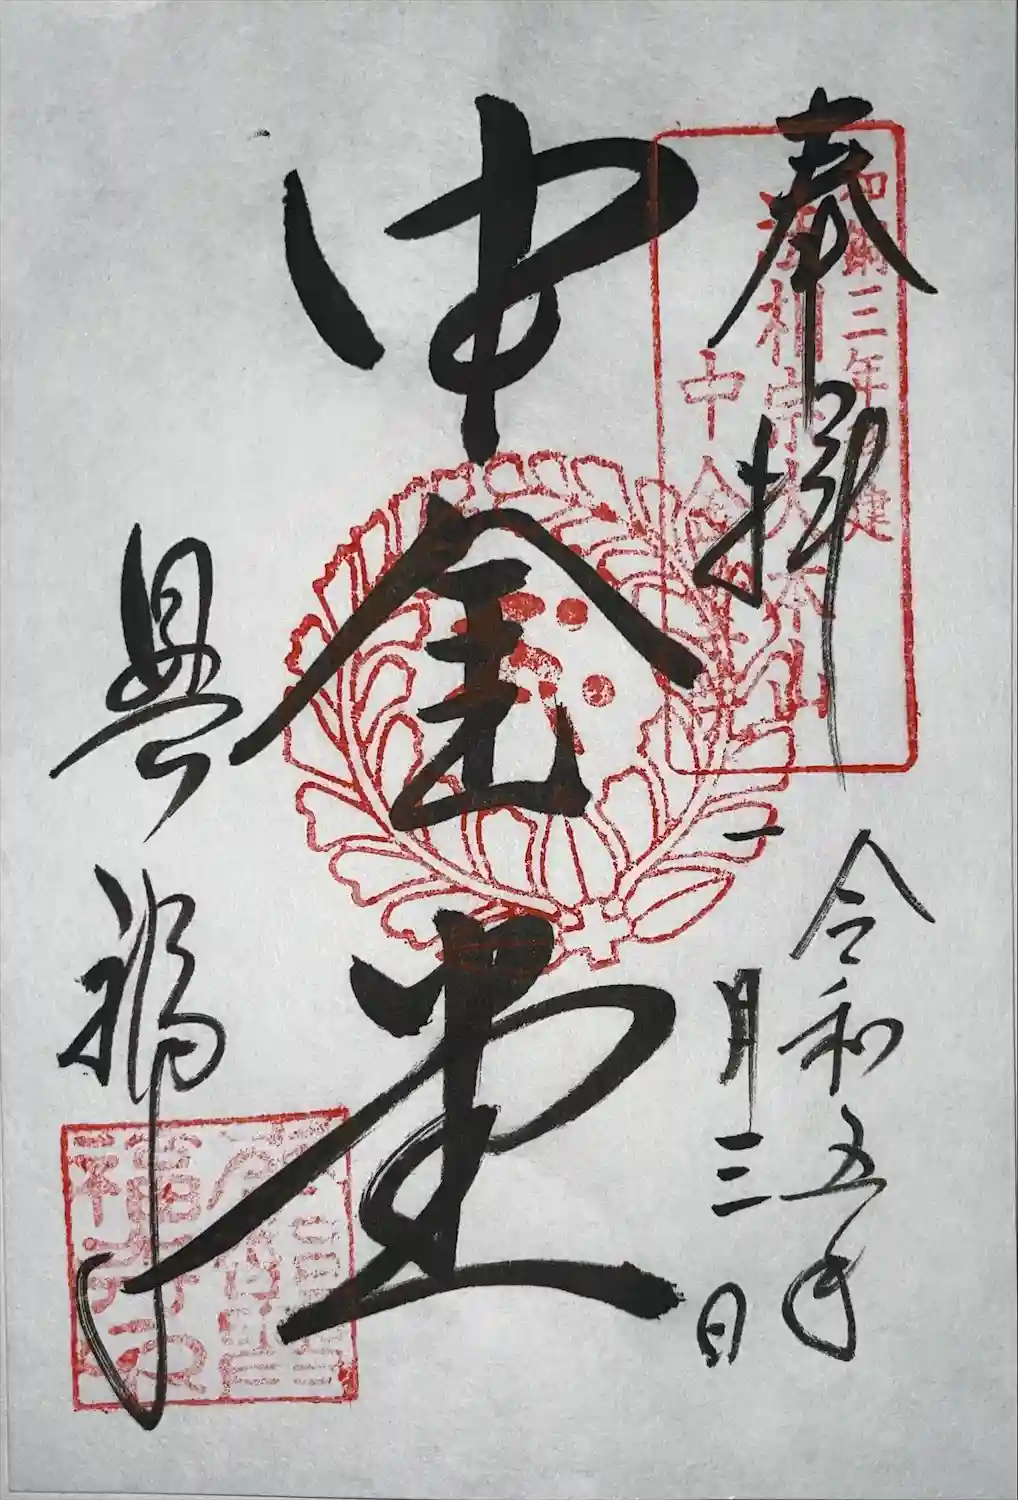 奉拝
令和五年
二月三日
中金堂
興福寺
和銅三年創建
法相宗大本山
中金堂